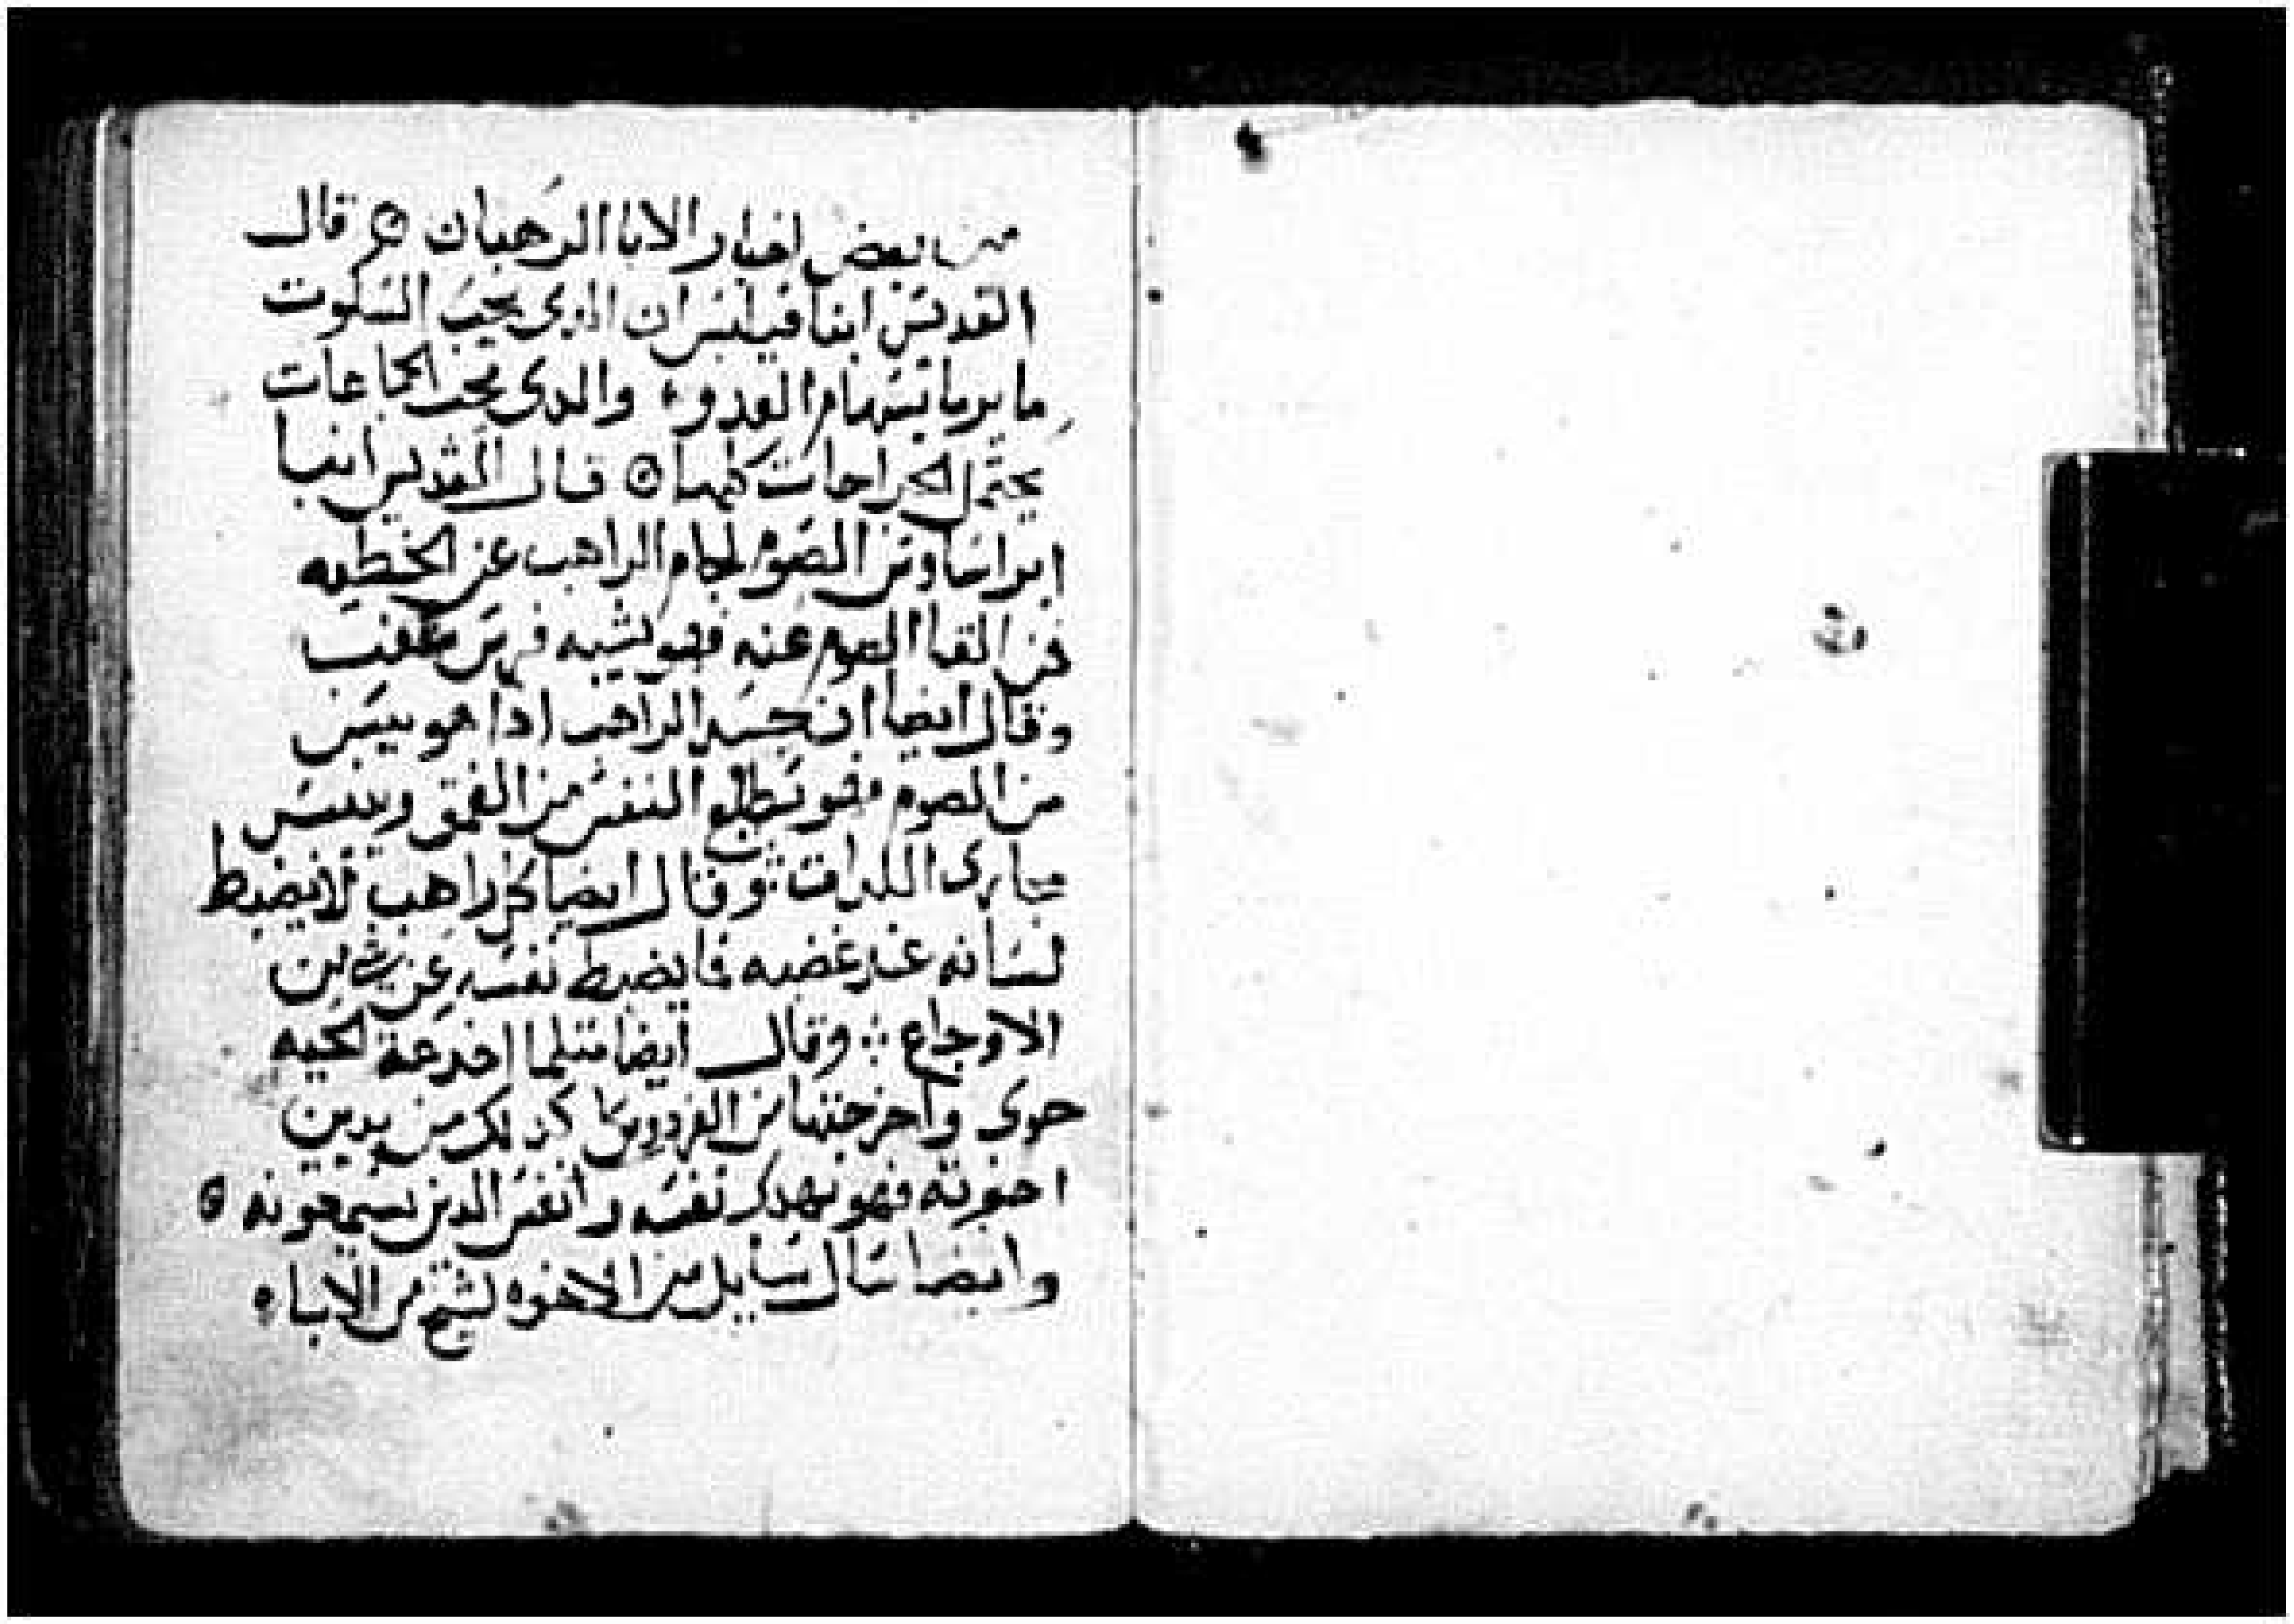 من بعض اخبار الابا الرهبان ۞ قال
القديس انبا فيلبس ان الدى يحب السكوت
ما يرما بسهام العدو، والدى يحب الجماعات
يحتمل الجراحات كلها ۞ قال القديس انبا
الصوم لجام الراهب عن الخطيه
فمن القا الصوم عنه فهو يشبه فرس
وقال ايضا ان جسد الراهب اذا هو يبس
من الصوم فهو يطلع النفس من العمق ويبس
مجارى اللدات ؞ وقال ايضا كل راهب لا يضبط
لسانه عند غضبه فما يضبط نفسه عن شى من
الاوجاع ؞ وقال ايضا متلما اخدعة الحيه
حوى واخرجتها من الفردوس كدلك من يدين
اخوته فهو يهلك نفسه وانفس الدين يسمعونه ۞
وايضا سال سايل من الاخوه لشيخ من الابا،